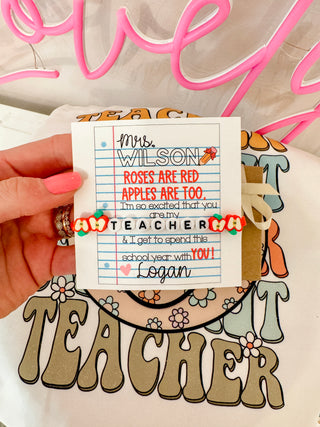 Love
TEACHER
Mrs.
WILSON
ROSES ARE RED
APPLES ARE TOO,
I'm so excited that you
are my
TEACHER
& I get to spend this
school year with YOU!
Logan
TEACHER